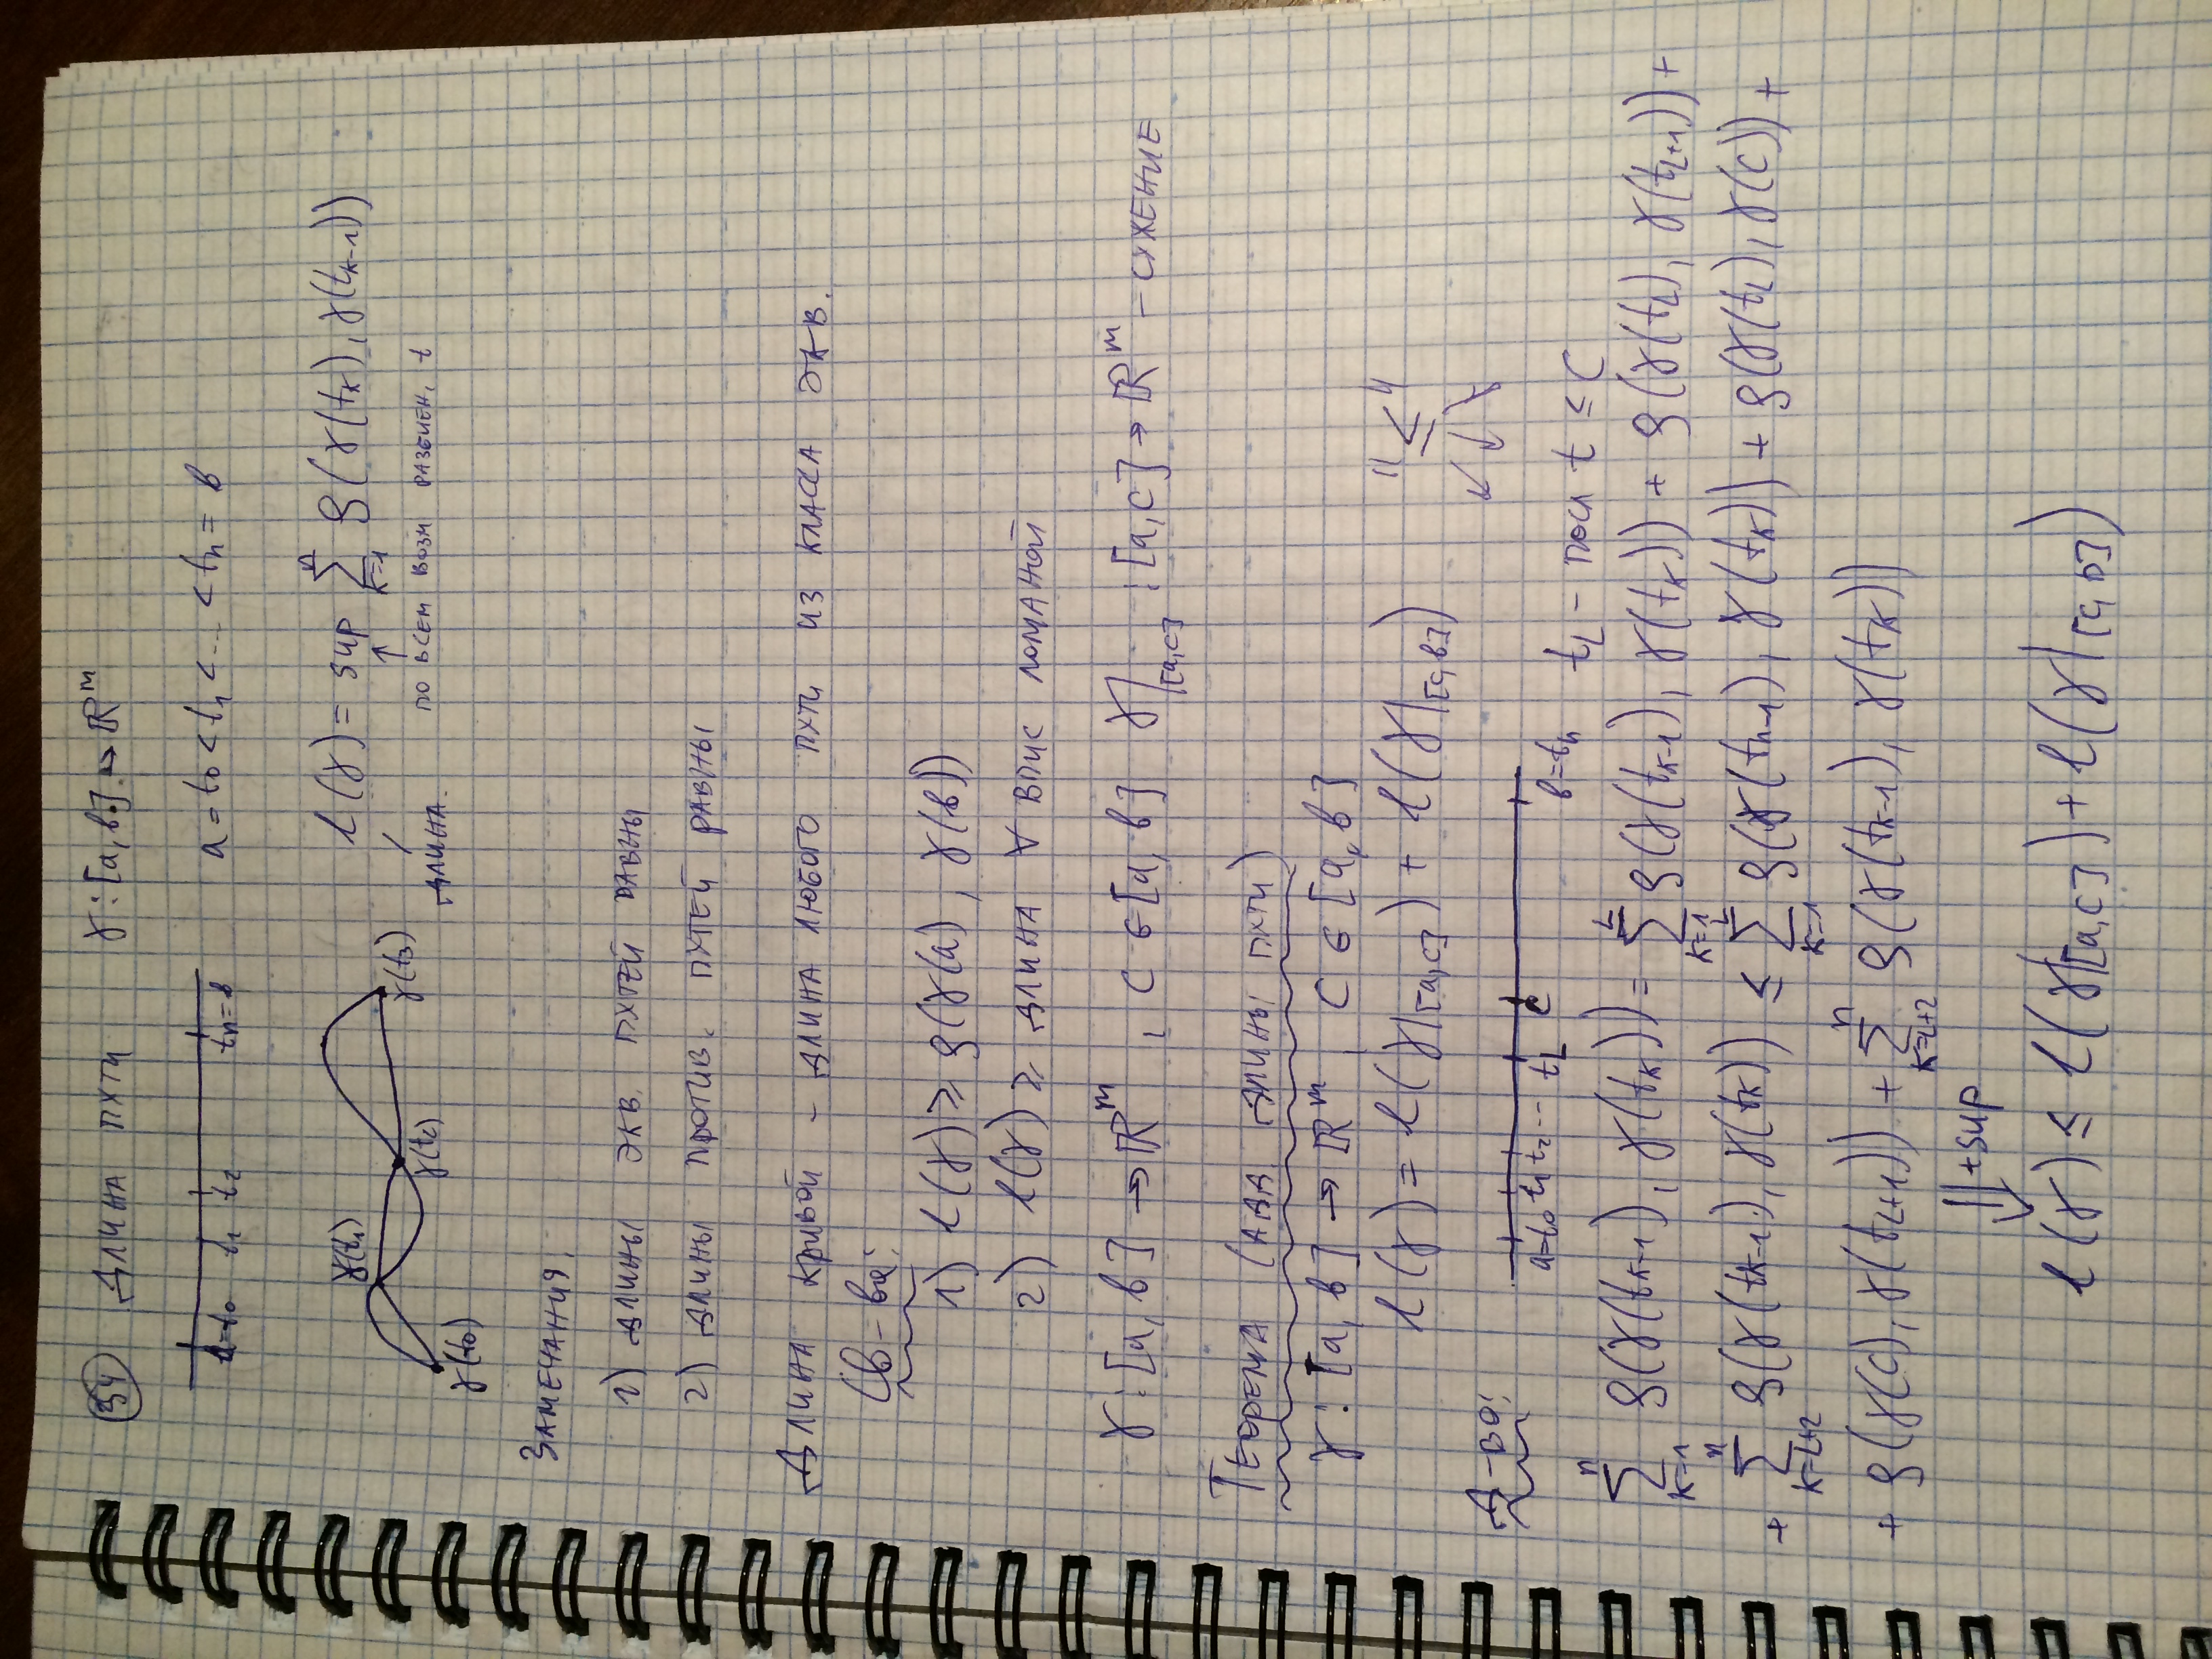 54 Длина пути γ: [a, b] → ℝᵐ
a=t₀ t₁ t₂ tₙ=b a = t₀ < t₁ < ... < tₙ = b
γ(t₀) γ(t₁) γ(t₂) γ(t₃) l(γ) = sup ∑ₖ₌₁ⁿ ρ(γ(tₖ), γ(tₖ₋₁))
длина. по всем возм разбиен. t
Замечания.
1) длины экв. путей равны
2) длины против. путей равны
Длина кривой – длина любого пути из класса экв.
Св-ва:
1) l(γ) ≥ ρ(γ(a), γ(b))
2) l(γ) ≥ длина ∀ впис ломаной
γ: [a, b] → ℝᵐ, c ∈ [a, b] γ|[a,c] : [a, c] → ℝᵐ – сужение
Теорема (адд. длины пути)
γ: [a, b] → ℝᵐ, c ∈ [a, b]
l(γ) = l(γ|[a,c]) + l(γ|[c,b]) "≤"
Д-во:
a=t₀ t₁ t₂ ... t_L c b=tₙ t_L – посл t ≤ c
∑ₖ₌₁ⁿ ρ(γ(tₖ₋₁), γ(tₖ)) = ∑ₖ₌₁ᴸ ρ(γ(tₖ₋₁), γ(tₖ)) + ρ(γ(t_L), γ(t_L+1)) +
+ ∑ₖ₌L₊₂ⁿ ρ(γ(tₖ₋₁), γ(tₖ)) ≤ ∑ₖ₌₁ᴸ ρ(γ(tₙ₋₁), γ(tₖ)) + ρ(γ(t_L), γ(c)) +
+ ρ(γ(c), γ(t_L+1)) + ∑ₖ₌L₊₂ⁿ ρ(γ(tₖ₋₁), γ(tₖ))
⇓ + sup
l(γ) ≤ l(γ|[a,c]) + l(γ|[c,b])